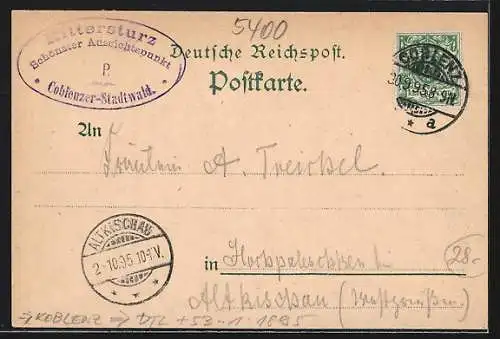 5400
Rittersturz
Schönster Aussichtspunkt
P.
Coblenzer-Stadtwald.
Deutsche Reichspost.
Postkarte.
COBLENZ
30.9.95.8-9N.
a
An
Fräulein A. Treichel
ALTKISCHAU
2.10.95.10-11V.
in
28-
Altkischau (Westpreußen)
→ KOBLENZ ⇒
1895